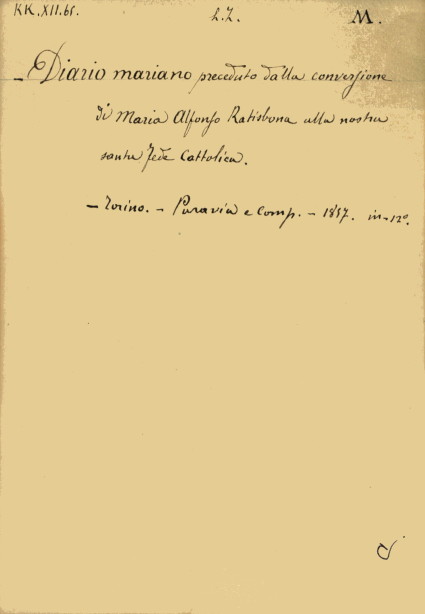 KK.XII.65. L.Z. M.
- Diario mariano preceduto dalla conversione
di Maria Alfonso Ratisbona alla nostra
santa fede Cattolica.
- Torino. - Paravia e Comp. - 1857. in-12º.